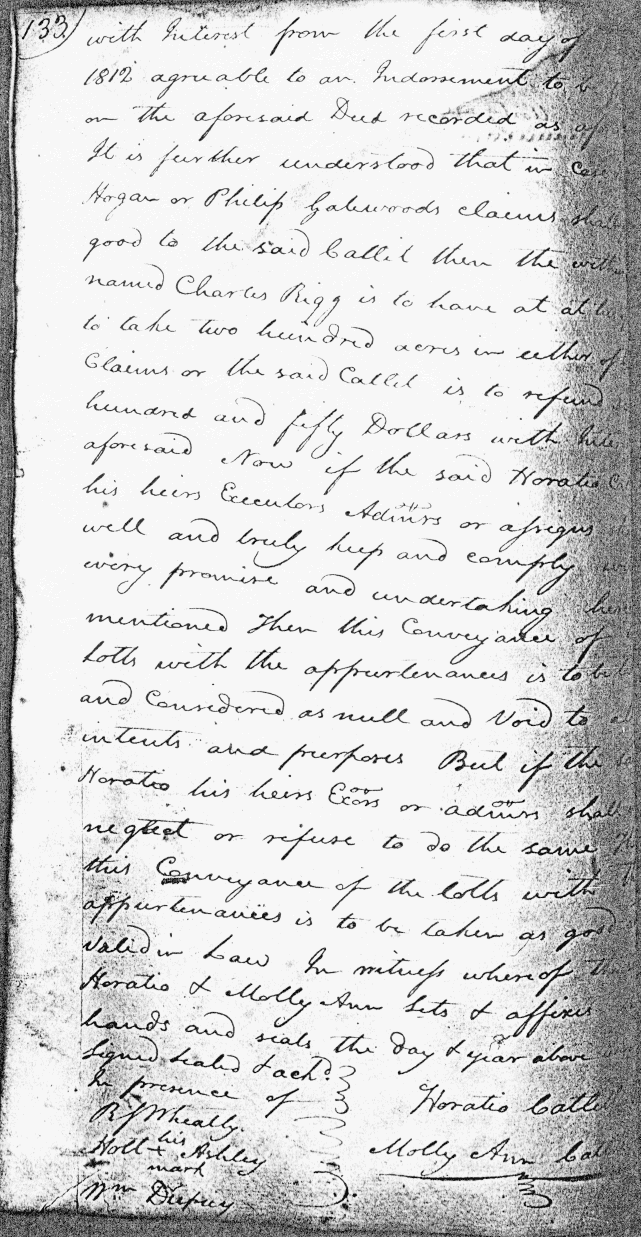 133
with Interest from the first day of
1812 agreeable to an Indorsement to b
on the aforesaid Deed recorded as afo
It is further understood that in case
Hogan or Philip Gatewoods claims shall
good to the said Catlit then the with
named Charles Rigg is to have at
to take two hundred acres in either of
Claims or the said Catlet is to refund
hundred and fifty Dollars with Inte
aforesaid Now if the said Horatio C
his heirs Executors Admrs or assigns
well and truly keep and comply
every promise and undertaking here
mentioned Then this Conveyance of
Lotts with the appurtenances is to be
and Considered as null and Void to al
intents and purposes But if the s
Horatio his heirs Exors or admrs shall
neglect or refuse to do the same Th
this Conveyance of the lotts with
appurtenances is to be taken as good
valid in Law In witness whereof th
Horatio & Molly Ann Sets & affixes
hands and seals the day & year above
Signed sealed & ackd.
In presence of
Horatio Catle
R J Wheatly
his
Holt + Ashley
mark
Molly Ann Cat
Wm Dupuy